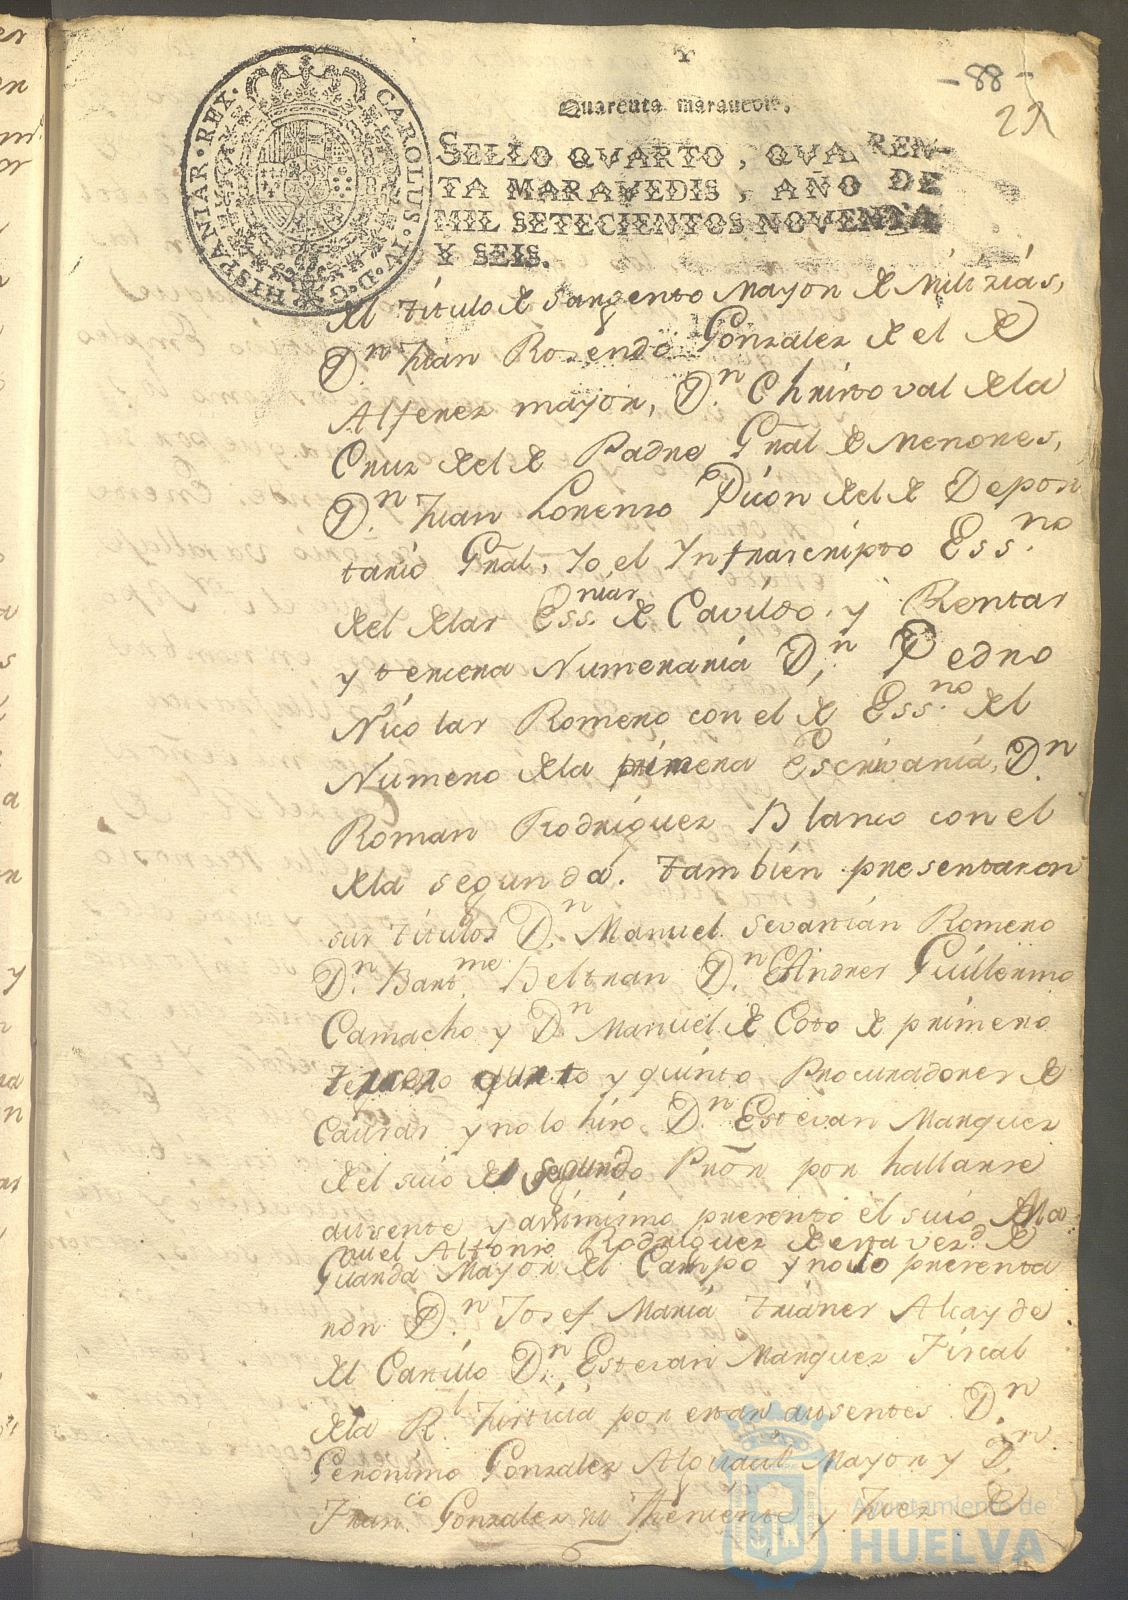 - 88 -
Quarenta marauedis.
SELLO QVARTO, QVAREN-
TA MARAVEDIS, AÑO DE
MIL SETECIENTOS NOVENTA
Y SEIS.
CAROLUS·IV·D·G·HISPANIAR·REX·
del titulo de Sargento Mayor de Milizias,
Dn. Juan Rosendo Gonzalez de el de
Alferez mayor, Dn. Christoval de la
Cruz del de Padre Gñal de Menores,
Dn. Juan Lorenso Picon del de Deposi
tario Gñal, Yo el Infrascripto Essno.
del de las Essnias. de Cavildo, y Rentas
y tercera Numeraria Dn. Pedro
Nicolas Romero con el de Essno. del
Numero de la primera Escrivania, Dn
Roman Rodriguez Blanco con el
de la segunda. Tambien presentaron
sus titulos Dn. Manuel Sevastian Romero
Dn. Bartme. Beltran Dn. Andres Guillermo
Camacho y Dn Manuel de Coto de primero
tercero quarto y quinto Procuradores de
Causas y no lo hizo Dn Estevan Marquez
del suio de segundo Prõn por hallarse
ausente y asimismo presentó el suio Ma
nuel Alfonso Rodriguez de esta vezd. de
Guarda Mayor del Campo y no lo presenta
ron Dn. Josef Maria Trianes Alcayde
del Castillo Dn. Estevan Marquez Fiscal
de la Rl Justicia por estar ausentes Dn.
Geronimo Gonzalez Alguacil Mayor y Dn.
Franco. Gonzalez su Theniente y Juez de
Ayuntamiento de
HUELVA